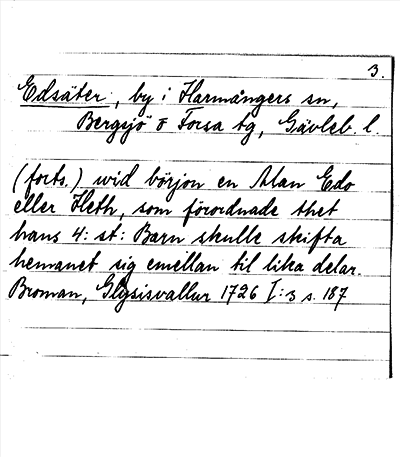 3.
Edsäter, by i Harmångers sn,
Bergsjö o Forsa tg, Gävleb. l.
(forts.) wid börjon en Man Edo
eller Heth, som förordnade thet
hans 4: st: Barn skulle skifta
hemanet sig emellan til lika delar.
Broman, Glysisvallur 1726 I:3 s. 187